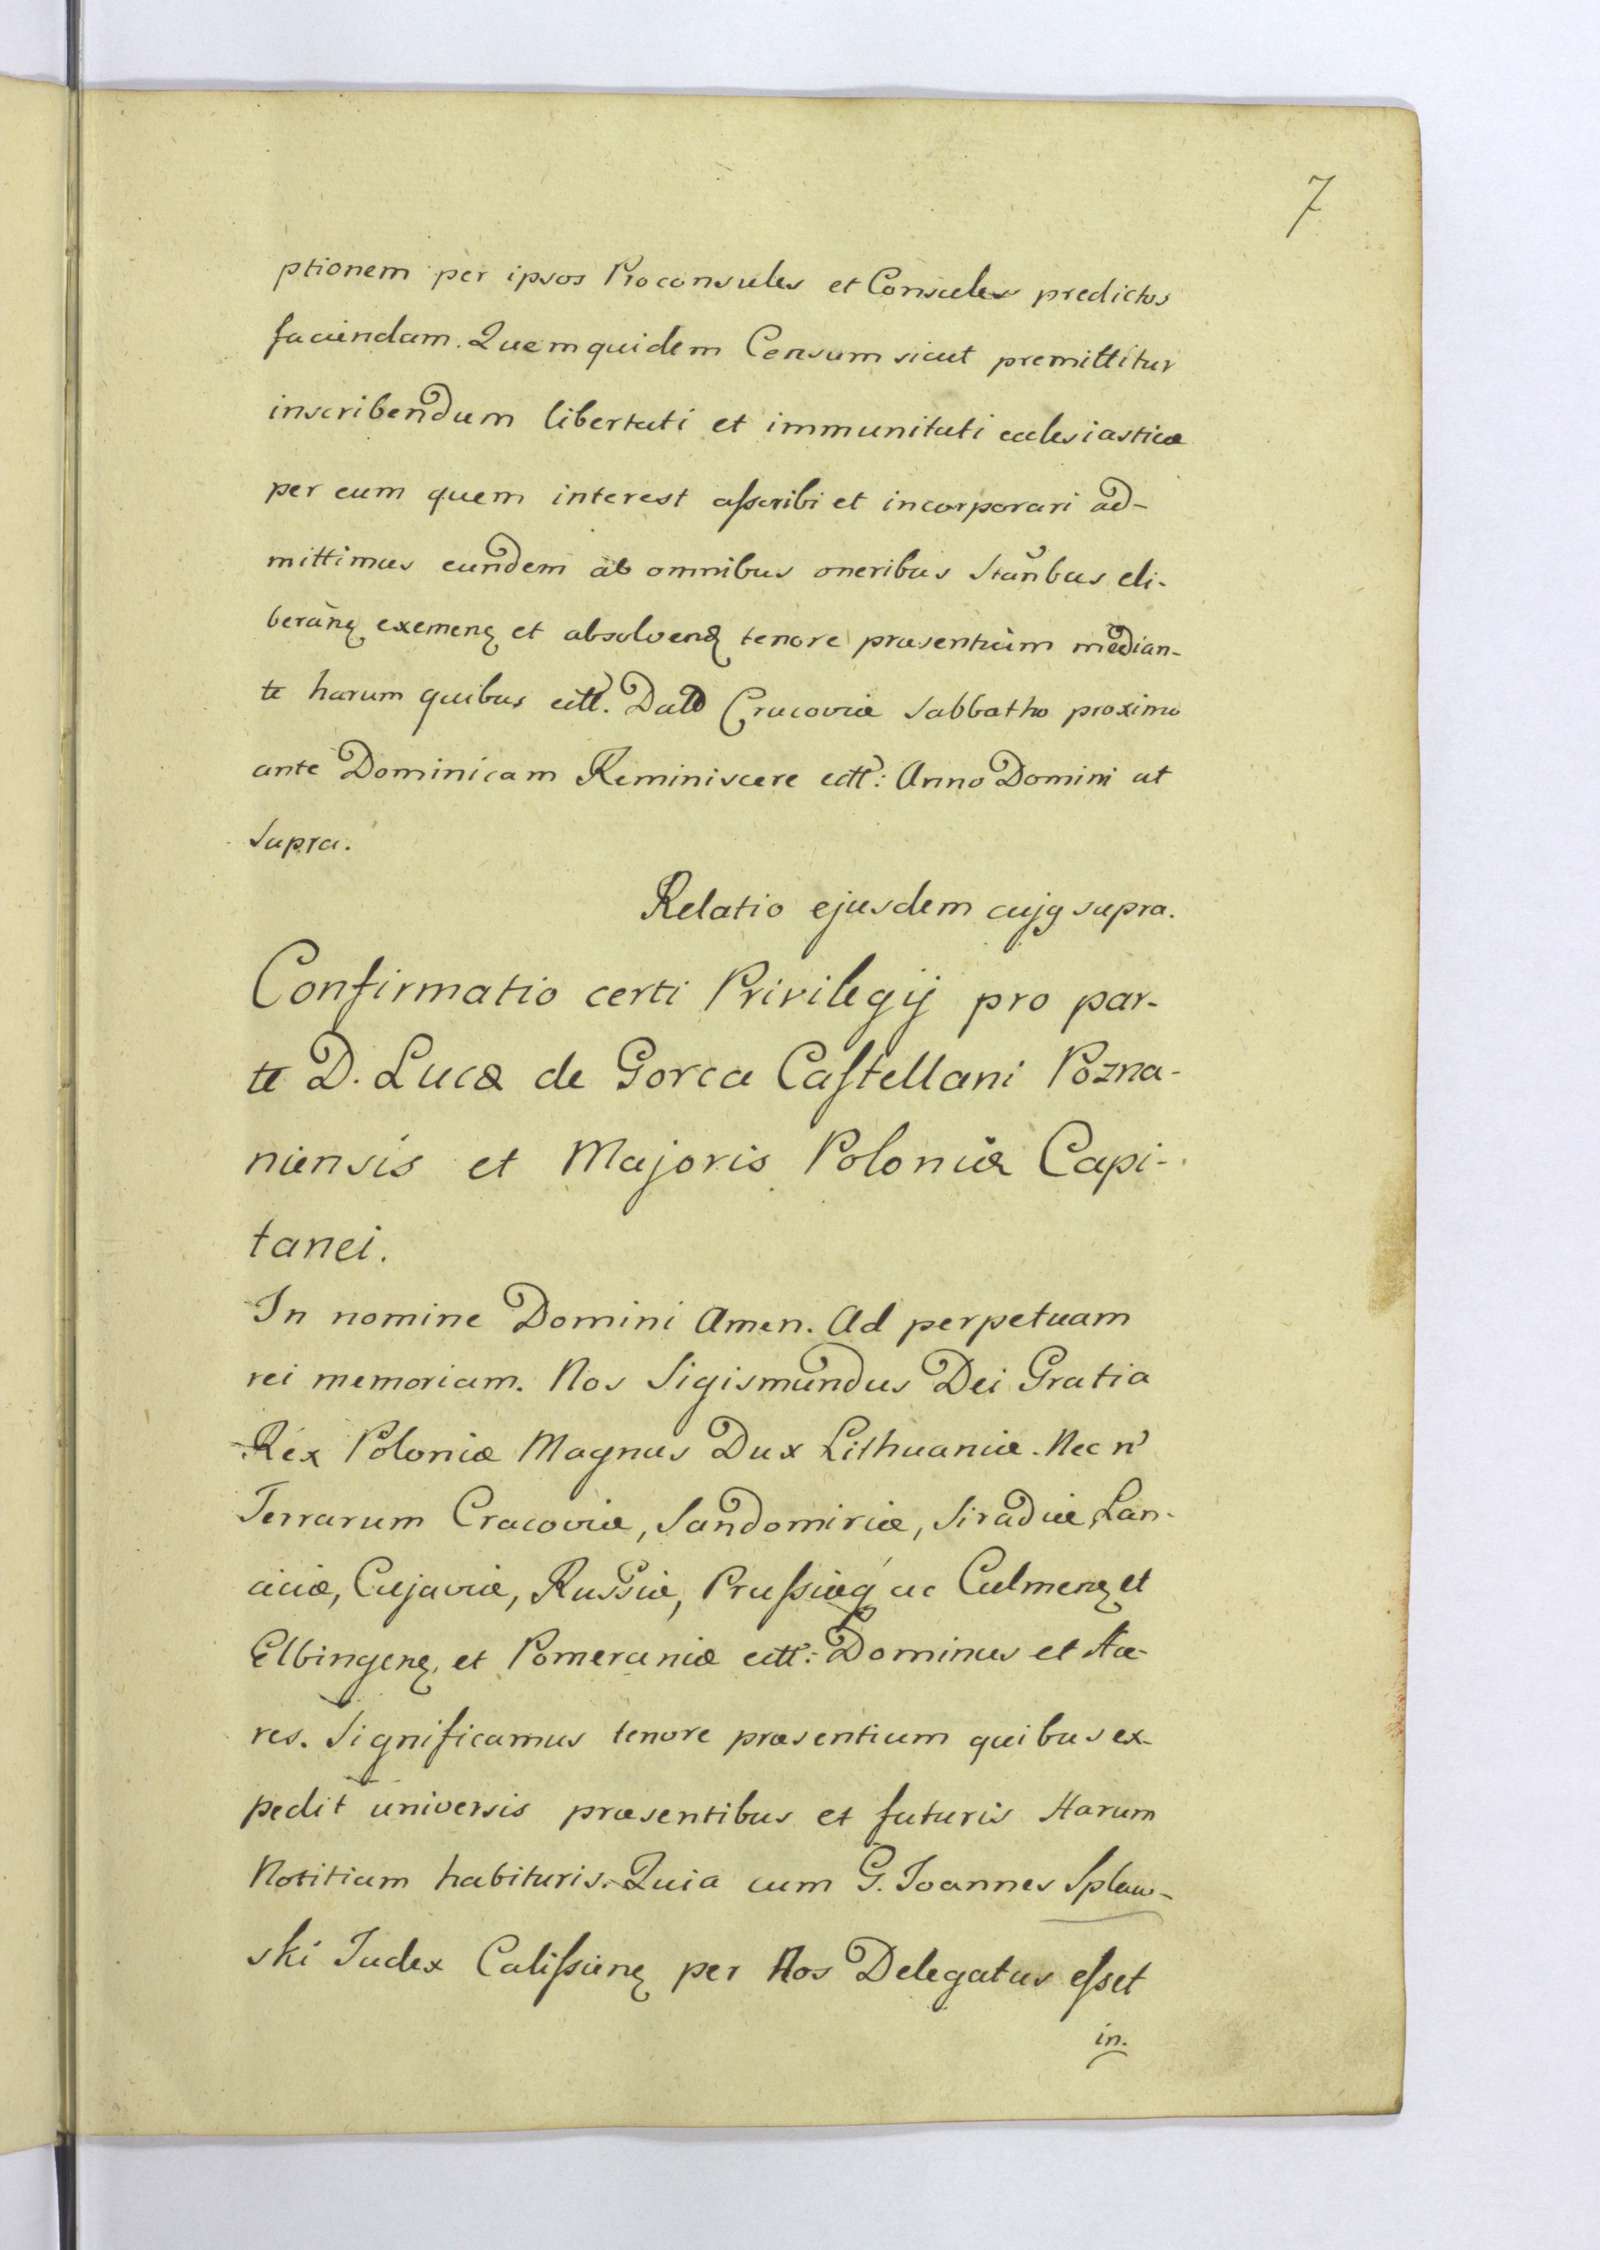 7
ptionem per ipsos Proconsules et Consules predictos
faciendam. Quemquidem Censum sicut premittitur
inscribendum libertati et immunitati ecclesiasticæ
per eum quem interest aſscribi et incorporari ad-
mittimus eundem ab omnibus oneribus Stañbus eli-
berañꝗ exemenꝗ et absolvenꝗ tenore præsentium median-
te harum quibus ettc̃. Datt Cracoviæ Sabbatho proximo
ante Dominicam Reminiscere ettc̃: Anno Domini ut
Supra.
Relatio ejusdem cujꝗ supra.
Confirmatio certi Privilegij pro par-
te D. Lucæ de Gorca Caſtellani Pozna-
niensis et Majoris Poloniæ Capi-
tanei.
In nomine Domini Amen. Ad perpetuam
rei memoriam. Nos Sigismundus Dei Gratia
Rex Poloniæ Magnus Dux Lithuaniæ. Nec n̄
Terrarum Cracoviæ, Sandomiriæ, Siradiæ, Lan-
ciciæ, Cujaviæ, Russiæ, Pruſsiæꝗ́ ac Culmenꝗ et
Elbingenꝗ et Pomeraniæ ettc̃: Dominus et Hæ-
res. Significamus tenore præsentium quibus ex-
pedit universis præsentibus et futuris Harum
Notitiam habituris. Quia cum G. Joannes Splaw-
ski Judex Caliſsienꝗ per Nos Delegatus eſset
in.